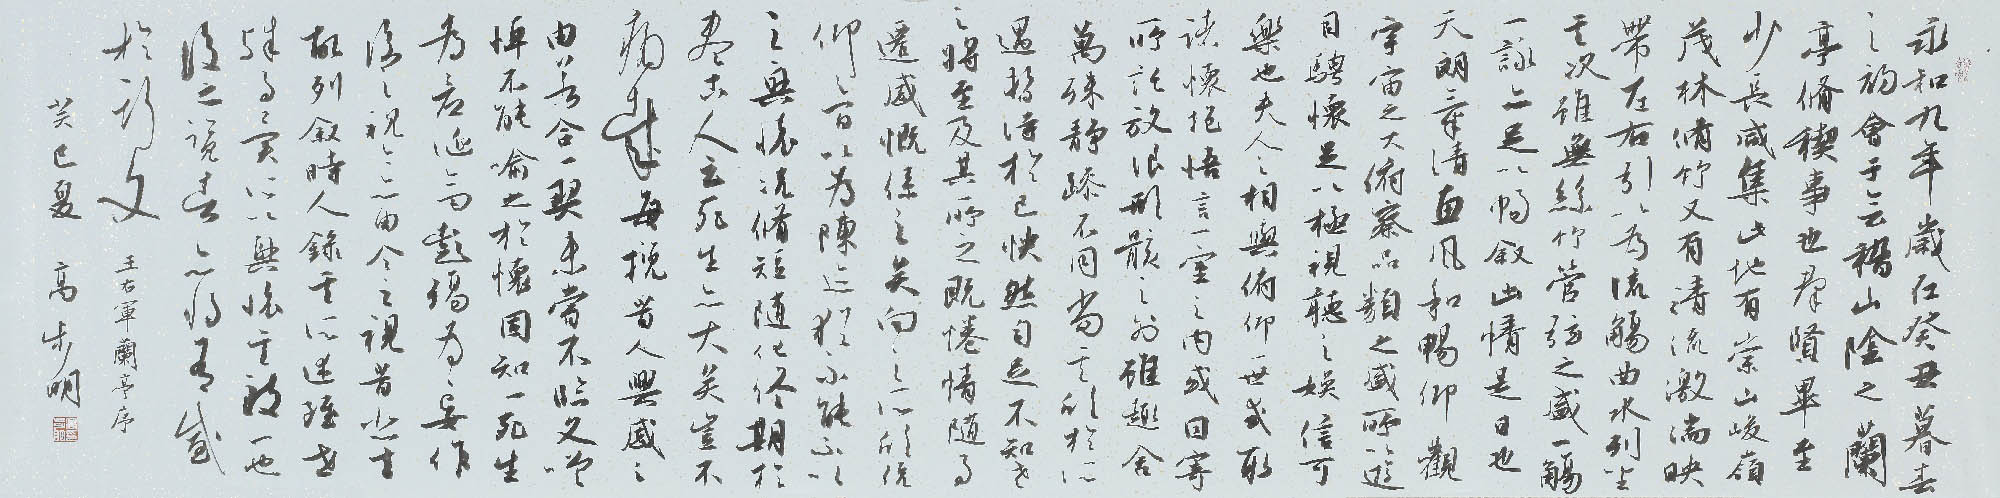 永和九年歲在癸丑暮春
之初會于會稽山陰之蘭
亭脩稧事也群賢畢至
少長咸集此地有崇山峻嶺
茂林脩竹又有清流激湍映
帶左右引以為流觴曲水列坐
其次雖無絲竹管弦之盛一觴
一詠亦足以暢敘幽情是日也
天朗氣清惠風和暢仰觀
宇宙之大俯察品類之盛所以遊
目騁懷足以極視聽之娛信可
樂也夫人之相與俯仰一世或取
諸懷抱悟言一室之內或因寄
所託放浪形骸之外雖趣舍
萬殊靜躁不同當其欣於所
遇暫得於己快然自足不知老
之將至及其所之既惓情隨事
遷感慨係之矣向之所欣俛
仰之間以為陳迹猶不能不以
之興懷況脩短隨化終期於
盡古人云死生亦大矣豈不
痛哉每攬昔人興感之
由若合一契未嘗不臨文嗟
悼不能喻之於懷固知一死生
為虛誕齊彭殤為妄作
後之視今亦由今之視昔悲夫
故列敘時人錄其所述雖世
殊事異所以興懷其致一也
後之覽者亦將有感
於斯文
王右軍蘭亭序
癸巳夏 高步明